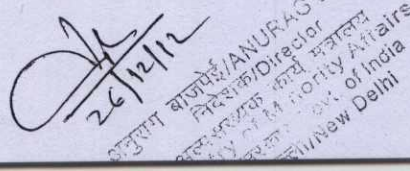 26/12/12
अनुराग बाजपेई/ANURAG
निदेशक/Director
अल्पसंख्यक कार्य मंत्रालय
of Minority Affairs
Govt. of India
/New Delhi